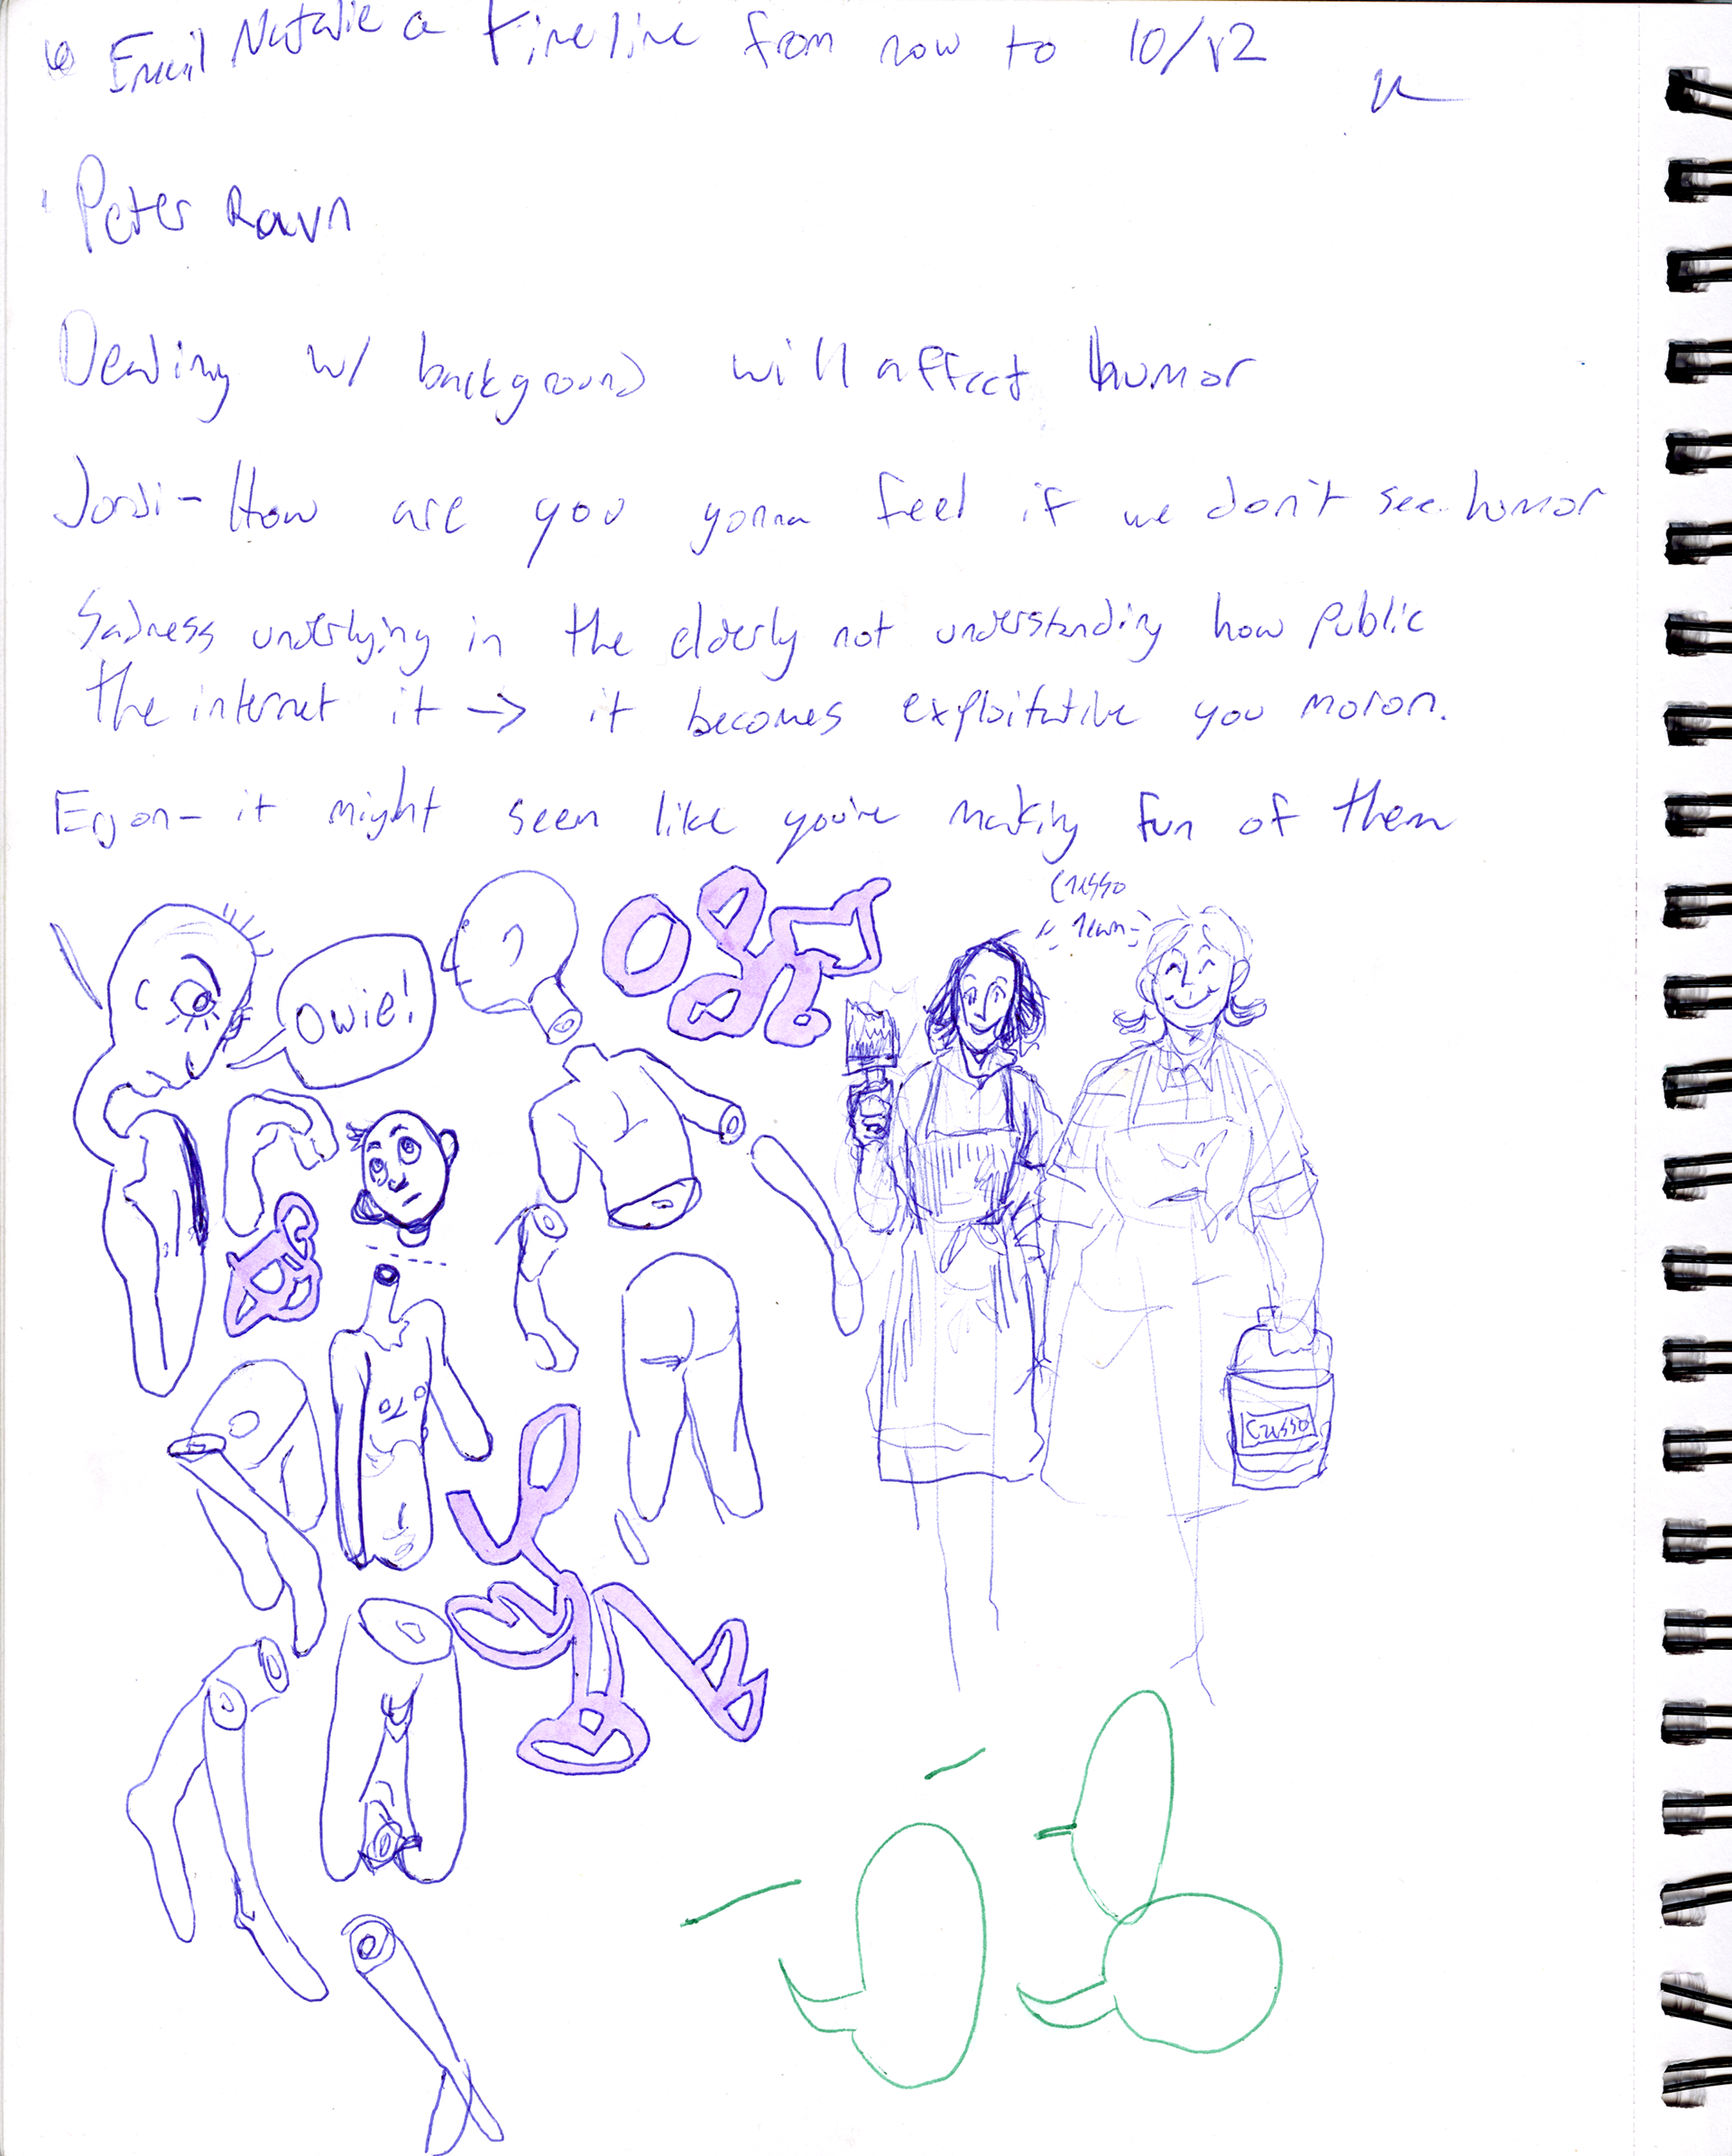 Email Natalie a timeline from now to 10/12
Peter Ravn
Dealing w/ background will affect humor
Jordi - How are you gonna feel if we don't see humor
Sadness underlying in the elderly not understanding how public
the internet it → it becomes exploitative you moron.
Ergon - it might seem like you're making fun of them
Owie!
Crisso
Crisso